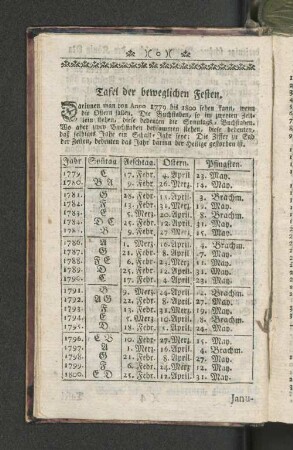 Tafel der beweglichen Festen.
Darinnen man von Anno 1779 bis 1800 sehen kann, wenn
die Ostern fallen. Die Buchstaben, so im zweyten
lein stehen, diese bedeuten die Sonntags-Buchstaben.
Wo aber zwey Buchstaben beysammen stehen, diese bedeuten,
daß selbiges Jahr ein Schalt-Jahr seye: Die Ziffer
der Zeilen, bedeuten das Jahr darinn der Heilige gestorben ist.
Jahr Sonntag Aschtag. Ostern. Pfingsten.
1779. C 17. Febr. 4. April. 23. May.
1780. B A 9. Febr. 26. Merz. 14. May.
1781. G 28. Febr. 15. April. 3. Brachm.
1782. F 13. Febr. 31. Merz. 19. May.
1783. E 5. Merz. 20. April. 8. Brachm.
1784. D C 25. Febr. 11. April. 30. May.
1785. B 9. Febr. 27. Merz. 15. May.
1786. A 1. Merz. 16. April. 4. Brachm.
1787. G 21. Febr. 8. April. 27. May.
1788. F E 6. Febr. 23. Merz. 11. May.
1789. D 25. Febr. 12. April. 31. May.
1790. C 17. Febr. 4. April. 23. May.
1791. B 9. Merz. 24. April. 12. Brachm.
1792. A G 22. Febr. 8. April. 27. May.
1793. F 13. Febr. 31. Merz. 19. May.
1794. E 5. Merz. 20. April. 8. Brachm.
1795. D 18. Febr. 5. April. 24. May.
1796. C B 10. Febr. 27. Merz. 15. May.
1797. A 1. Merz. 16. April. 4. Brachm.
1798. G 21. Febr. 8. April. 27. May.
1799. F 6. Febr. 24. Merz. 12. May.
1800. E D 25. Febr. 11. April. 31. May.
Janu-